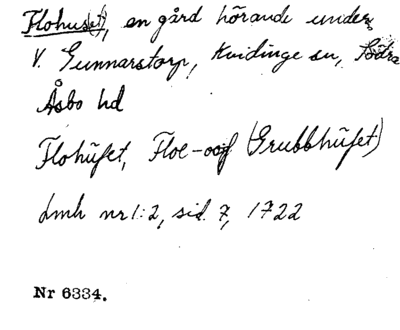 Flohus(et), en gård hörande under
V. Gunnarstorp, Kvidinge sn, Södra
Åsbo hd
Flohúset, Floe- och (Grubbhúset)
Lmh nr 1:2, sid. 7, 1722
Nr 6334.